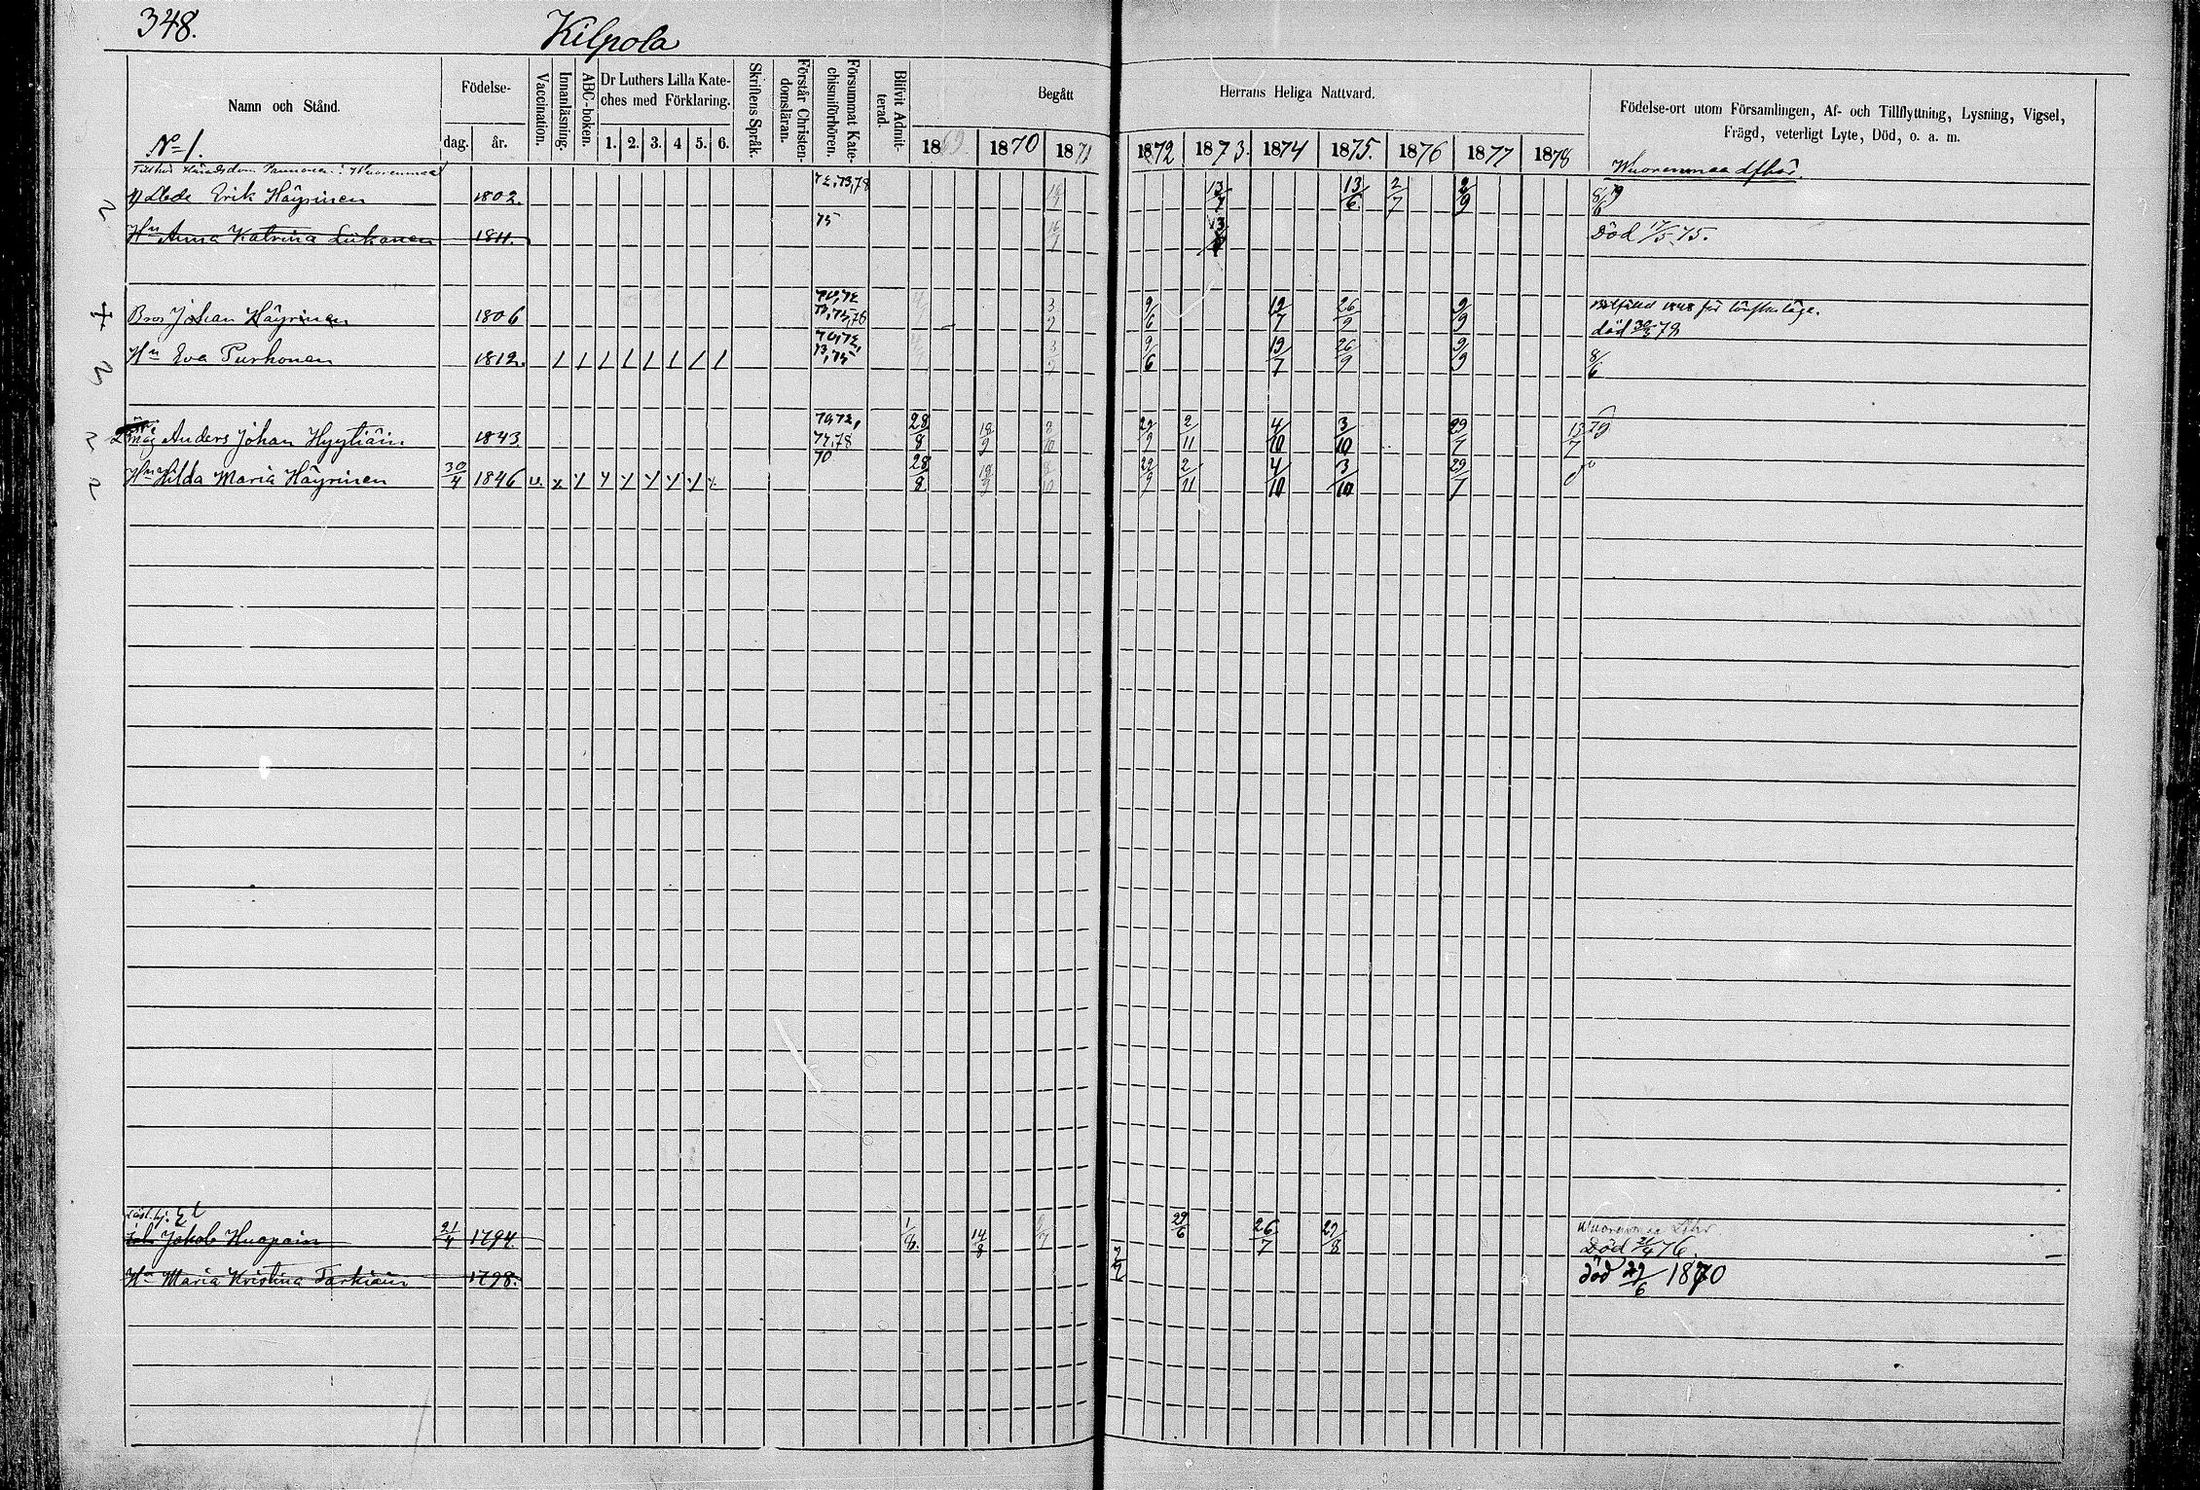 348.
Kilpola
Namn och Stånd.
Födelse-
dag.
år.
Vaccination.
Innanläsning.
ABC-boken.
Dr Luthers Lilla Kate-
ches med Förklaring.
1. 2. 3. 4 5. 6.
Skriftens Språk.
Förstår Christen-
domsläran.
Försummat Kate-
chismiförhören.
Blifvit Admit-
terad.
Begått
Herrans Heliga Nattvard.
1869 1870 1871 1872 1873. 1874 1875. 1876 1877 1878
Födelse-ort utom Församlingen, Af- och Tillflyttning, Lysning, Vigsel,
Frägd, veterligt Lyte, Död, o. a. m.
No 1.
i Wuorenmaa
72, 73, 78
Erik Häyrinen 1802. 13/7 13/6 2/7 2/9 8/6 79
75
Hu Anna Katrina Liikanen 1811. 16/7 13/7 Död 17/5 75.
70, 72
73, 75, 76
Bror Johan Häyrinen 1806 3/9 9/6 12/7 26/9 9/9
död 78
70, 72,
73, 75
Hu Eva Purhonen 1812. 3/9 9/6 19/7 26/9 9/9 8/6
70, 72,
74, 78
måg Anders Johan Hyytiäin 1843. 28/8 18/9 8/10 29/9 2/11 4/10 3/10 29/7 13/7 79
70
Hu Hilda Maria Häyrinen 30/4 1846 v. 28/8 18/9 8/10 29/9 2/11 4/10 3/10 29/7
Jakob Huopain 21/4 1794. 1/8. 14/8 2/7 29/6 26/7 29/8 Död 21/4 76.
Hu Maria Kristina Tarkiain 1798. död 29/6 1870